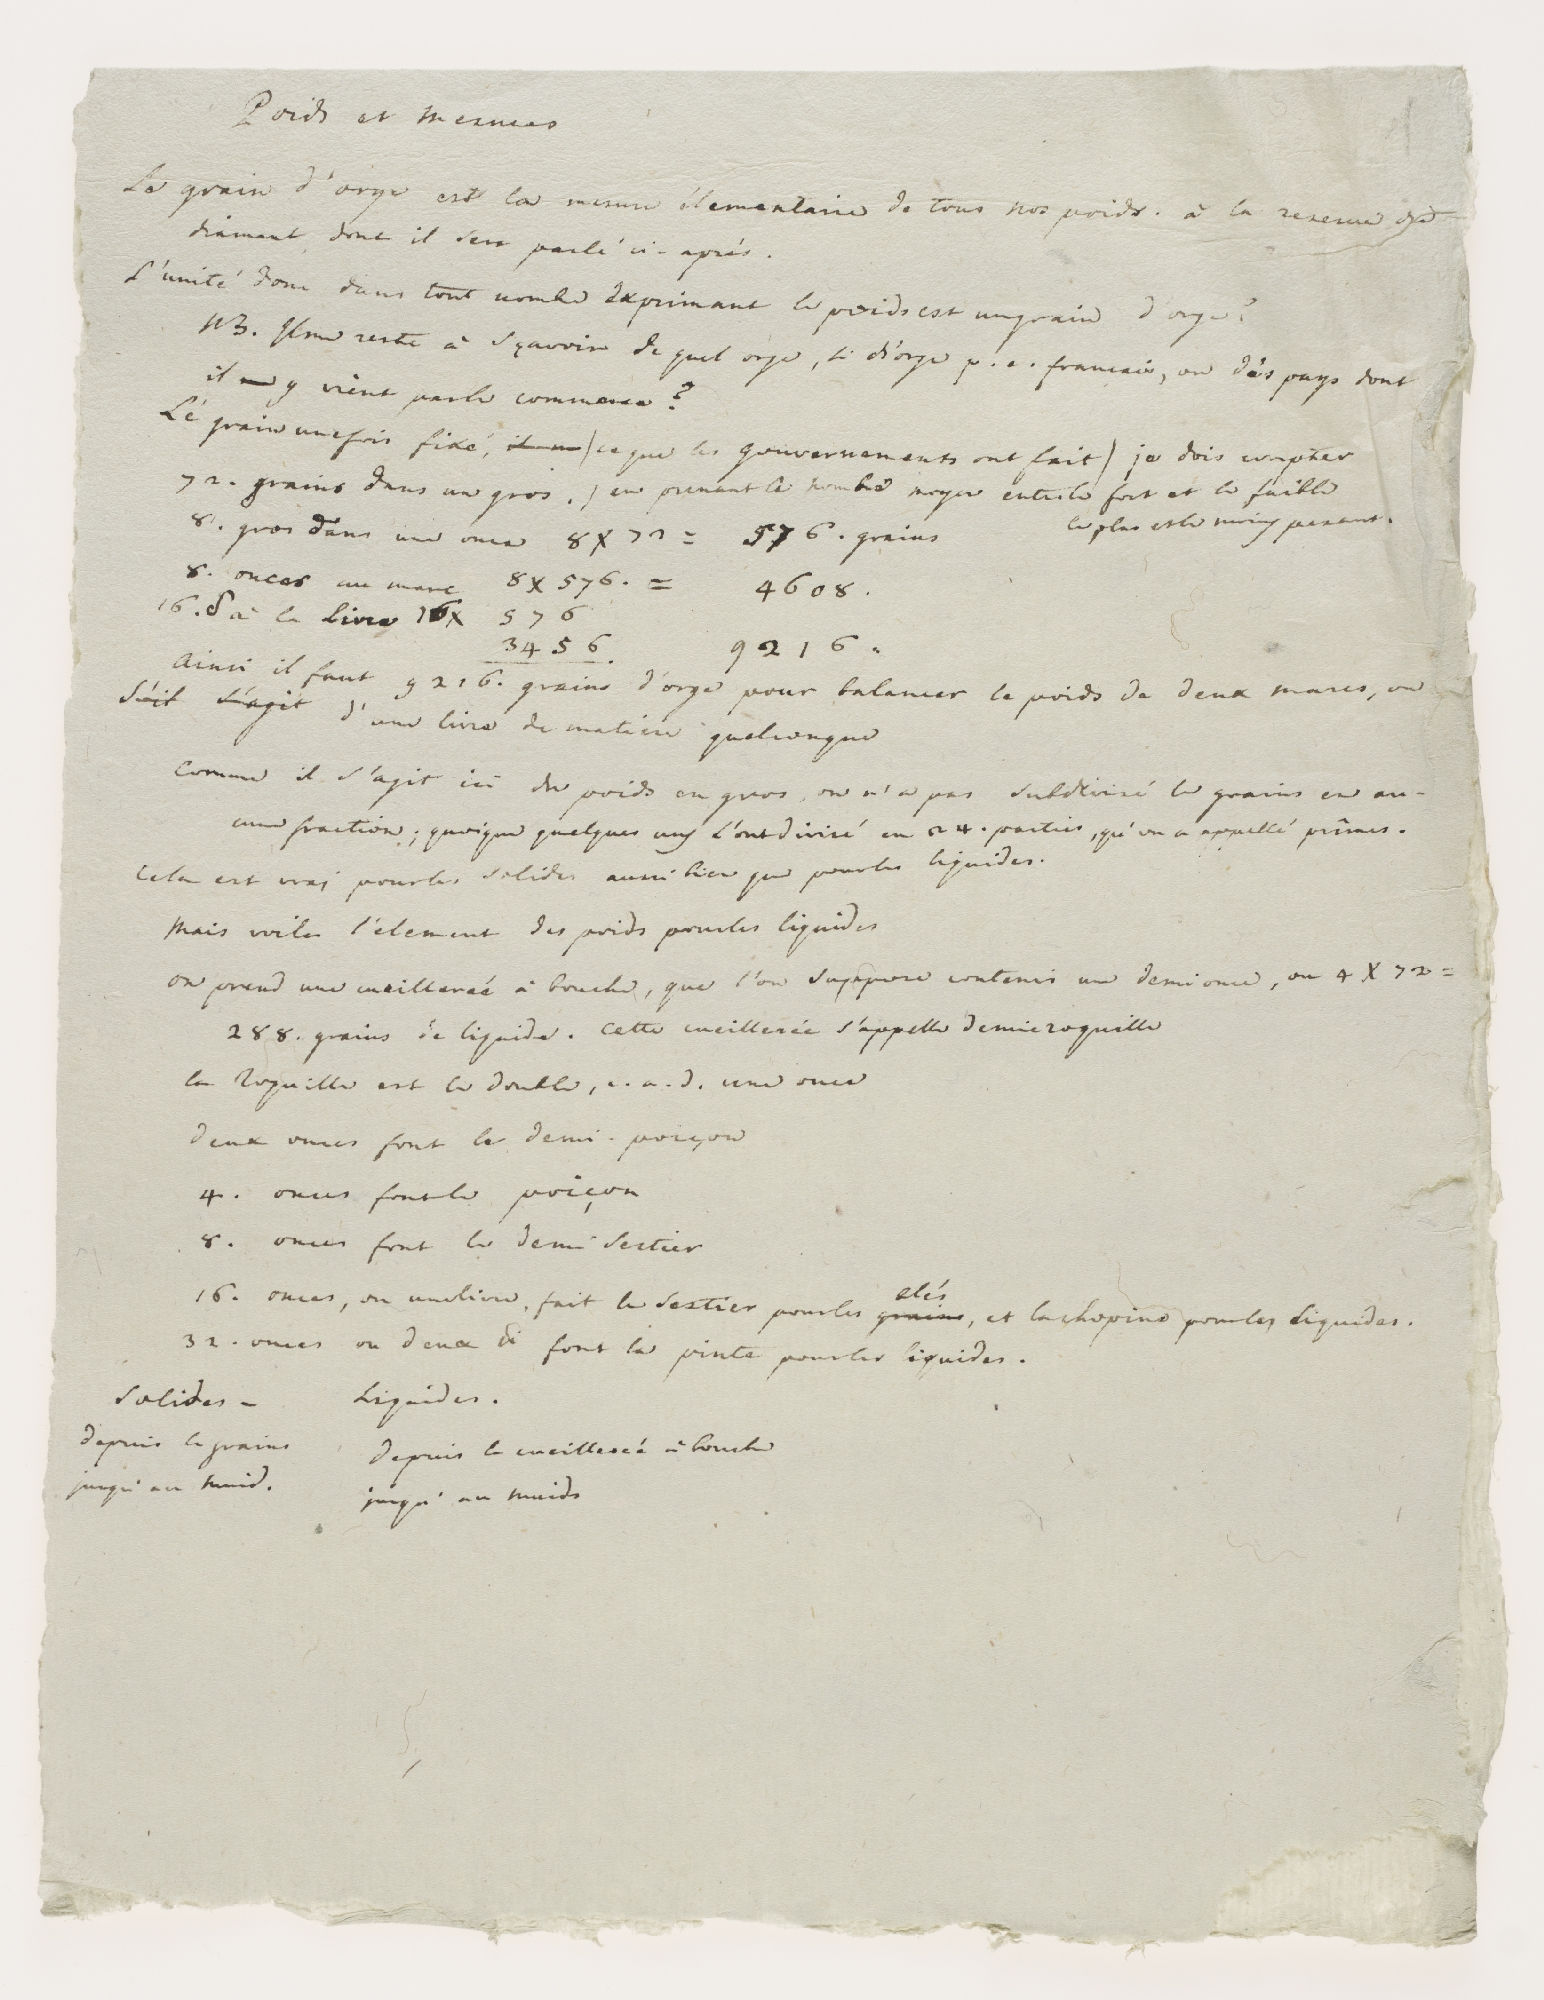 Poids et mesures
Le grain d'orge est la mesure élementaire de tous nos poids. à la reserve du
diamant, dont il sera parlé ci-après.
L'unité donc dans tout nombre exprimant le poids est un grain d'orge.
NB. Il me reste à sçavoir de quel orge, si d'orge p. e. francais, ou des pays dont
il y vient par le commerce?
Le grain une fois fixé, (ce que les gouvernements ont fait) je dois compter
72. grains dans un gros. ) en prenant le nombre moyen entre le fort et le faible
le plus et le moins pesant.
8. gros dans une once 8 X 72 = 576. grains
8. onces au marc 8 X 576. = 4608.
16. d° à la livre 16 X 576
3456. 9216.
Ainsi il faut 9216. grains d'orge pour balancer le poids de deux marcs, ou
s'il s'agit d'une livre de matiere quelconque
Comme il s'agit ici du poids en gros, on n'a pas subdivisé le grains en au-
cune fraction; quoique quelques uns l'ont divisé en 24. parties, qu'on a appellé primes.
Cela est vrai pour les solides aussi bien que pour les liquides.
Mais voila l'element des poids pour les liquides
on prend une cueillereé à bouche, que l'on suppose contenir une demi once, ou 4 X 72 =
288. grains de liquide. Cette cueillerée s'appelle demie roquille
la Roquille est le double, c. a. d. une once
deux onces font le demi-poiçon
4. onces font le poiçon
8. onces font le demi Sextier
16. onces, ou une livre, fait le Sextier pour les blés grains, et la chopine pour les liquides.
32. onces ou deux font la pinte pour les liquides.
Solides - Liquides.
depuis le grains depuis la cueillereé à bouche
jusqu'au muid. jusqu'au muids